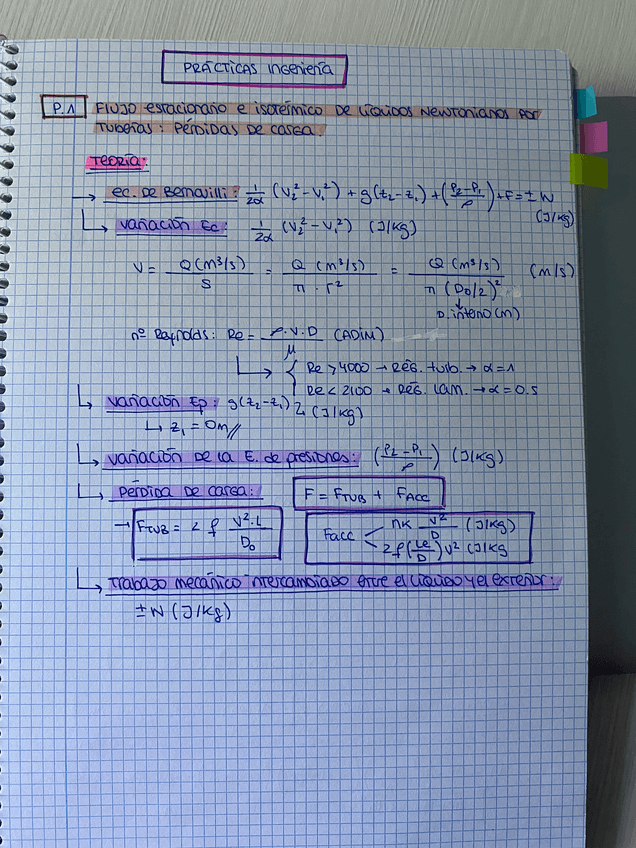 PRÁCTICAS INGENIERÍA
P.1 FLUJO ESTACIONARIO E ISOTÉRMICO DE LÍQUIDOS NEWTONIANOS POR
TUBERÍAS: PÉRDIDAS DE CARGA.
TEORÍA:
→ ec. de Bernouilli: 1/2α (V₂² - V₁²) + g(z₂ - z₁) + (P₂ - P₁/ρ) + F = ± W
(J/kg)
↳ variación Ec: 1/2α (V₂² - V₁²) (J/kg)
V = Q(m³/s)/S = Q (m³/s)/π · r² = Q (m³/s)/π (D₀/2)² (m/s)
↓
D. interno (m)
nº Reynolds: Re = ρ·V·D/μ (ADIM)
↳ { Re > 4000 → Rég. turb. → α = 1
Re < 2100 → Rég. lam. → α = 0.5
↳ variación Ep: g(z₂ - z₁) (J/kg)
↳ z₁ = 0m//
↳ variación de la E. de presiones: (P₂ - P₁/ρ) (J/kg)
↳ Pérdida de carga: F = F_TUB + F_ACC
→ F_TUB = 2 f V²·L/D₀
F_acc < nK V²/D (J/kg)
2f(Le/D) V² (J/kg
↳ Trabajo mecánico intercambiado entre el líquido y el exterior:
± W (J/kg)